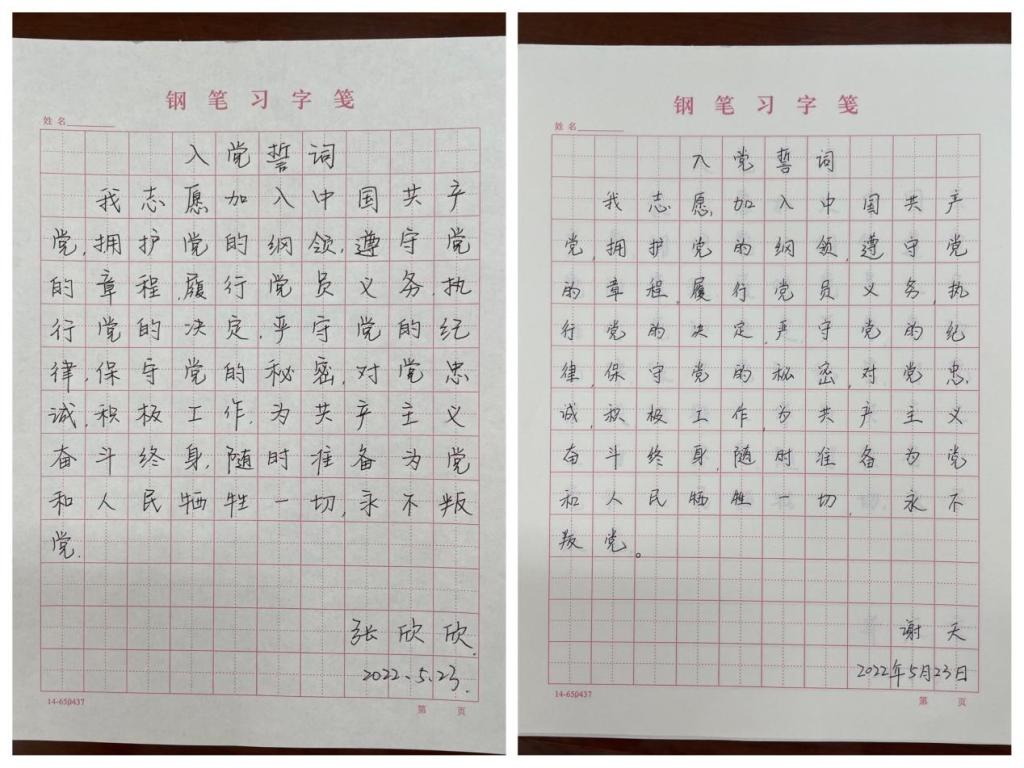 钢笔习字笺
姓名
入党誓词
我志愿加入中国共产
党,拥护党的纲领,遵守党
的章程,履行党员义务,执
行党的决定,严守党的纪
律,保守党的秘密,对党忠
诚,积极工作,为共产主义
奋斗终身,随时准备为党
和人民牺牲一切,永不叛
党.
张欣欣.
2022.5.23.
14-650437
第 页
钢笔习字笺
姓名
入党誓词
我志愿加入中国共产
党,拥护党的纲领,遵守党
的章程,履行党员义务,执
行党的决定,严守党的纪
律,保守党的秘密,对党忠
诚,积极工作,为共产主义
奋斗终身,随时准备为党
和人民牺牲一切,永不
叛党。
谢天
2022年5月23日
14-650437
第 页